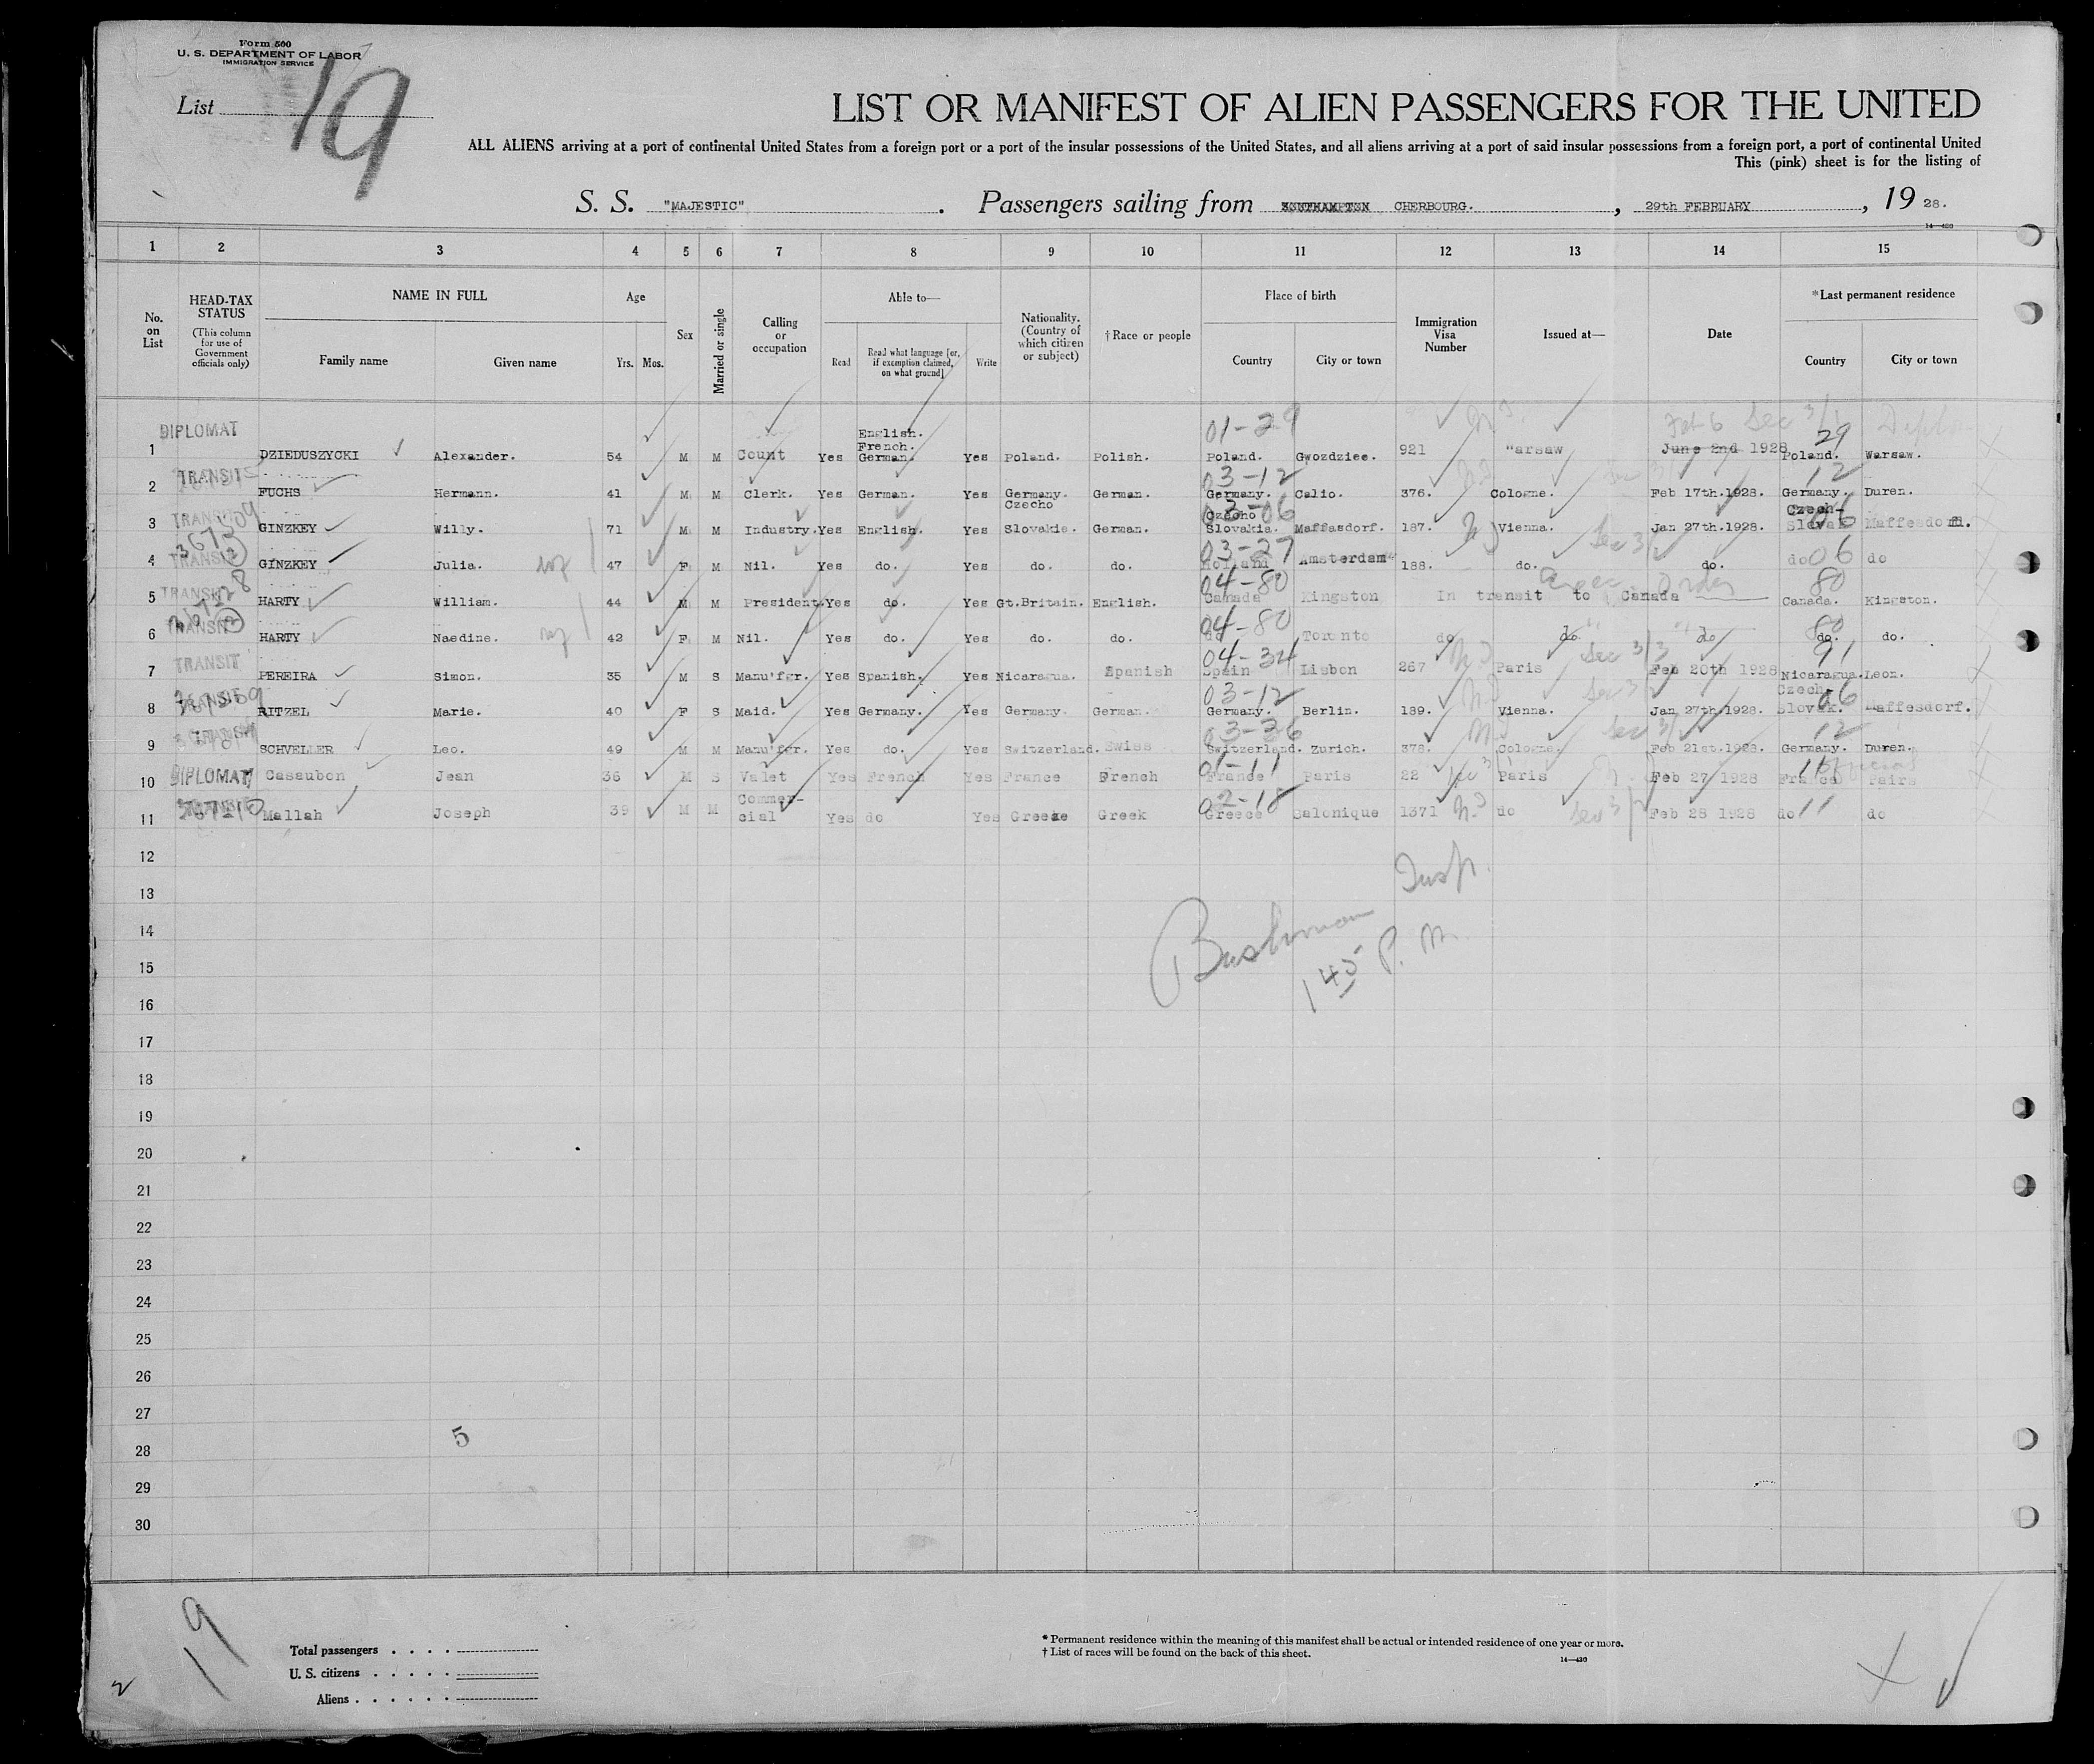 Form 500
U. S. DEPARTMENT OF LABOR
IMMIGRATION SERVICE
List 19
LIST OR MANIFEST OF ALIEN PASSENGERS FOR THE UNITED
ALL ALIENS arriving at a port of continental United States from a foreign port or a port of the insular possessions of the United States, and all aliens arriving at a port of said insular possessions from a foreign port, a port of continental United
This (pink) sheet is for the listing of
S. S. "MAJESTIC" . Passengers sailing from SOUTHAMPTON CHERBOURG. , 29th FEBRUARY , 19 28.
14—430
1 2 3 4 5 6 7 8 9 10 11 12 13 14 15
No. on List
HEAD-TAX STATUS (This column for use of Government officials only)
NAME IN FULL Family name Given name
Age Yrs. Mos.
Sex
Married or single
Calling or occupation
Able to— Read Read what language [or, if exemption claimed, on what ground] Write
Nationality. (Country of which citizen or subject)
†Race or people
Place of birth Country City or town
Immigration Visa Number
Issued at—
Date
*Last permanent residence Country City or town
1 DIPLOMAT DZIEDUSZYCKI Alexander. 54 M M Count Yes English. French. German. Yes Poland. Polish. 01-29 Poland. Gwozdziec. 921 "arsaw Feb 6 Sec 3/1 June 2nd 1928 29 Poland. Warsaw.
2 TRANSIT FUCHS Hermann. 41 M M Clerk. Yes German. Yes Germany. German. 03-12 Germany. Calio. 376. Cologne. Feb 17th.1928. 12 Germany. Duren.
3 TRANSIT GINZKEY Willy. 71 M M Industry. Yes English. Yes Czecho Slovakia. German. 03-06 Czecho Slovakia. Maffasdorf. 187. Vienna. Jan 27th.1928. 06 Czech-Slovak Maffesdorf.
4 TRANSIT GINZKEY Julia. 47 F M Nil. Yes do. Yes do. do. 03-27 Holland Amsterdam 188. do. Sec 3/2 do. do 06 do
5 TRANSIT HARTY William. 44 M M President. Yes do. Yes Gt.Britain. English. 04-80 Canada Kingston In transit to Canada 80 Canada. Kingston.
6 TRANSIT HARTY Naedine. 42 F M Nil. Yes do. Yes do. do. 04-80 do Toronto do do do 80 do. do.
7 TRANSIT PEREIRA Simon. 35 M S Manu'fgr. Yes Spanish. Yes Nicaragua. Spanish 04-34 Spain Lisbon 267 Paris Sec 3/3 Feb 20th 1928 91 Nicaragua. Leon.
8 TRANSIT RITZEL Marie. 40 F S Maid. Yes Germany. Yes Germany. German. 03-12 Germany. Berlin. 189. Vienna. Jan 27th.1928. 06 Czech-Slovak. Maffesdorf.
9 TRANSIT SCHVELLER Leo. 49 M M Manu'fgr. Yes do. Yes Switzerland. Swiss 03-36 Switzerland. Zurich. 378. Cologne. Feb 21st.1928. 12 Germany. Duren.
10 DIPLOMAT Casaubon Jean 36 M S Valet Yes French Yes France French 01-11 France Paris 22 Paris Feb 27 1928 11 France Official Pairs
11 Mallah Joseph 39 M M Commer-cial Yes do Yes Greece Greek 02-18 Greece Salonique 1371 do Feb 28 1928 do 11 do
12
13
14
15
16
17
18
19
20
21
22
23
24
25
26
27
28
29
30
Bushman Insp.
1 45 P. M.
5
19
Total passengers . . . .
U. S. citizens . . . . .
Aliens . . . . . .
* Permanent residence within the meaning of this manifest shall be actual or intended residence of one year or more.
† List of races will be found on the back of this sheet.
14—430
2